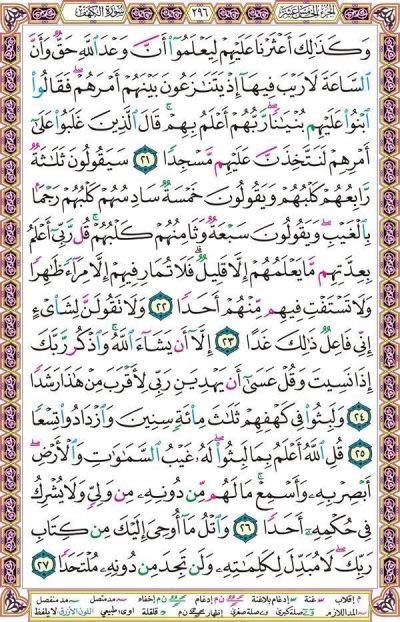 سورة الكهف ٢٩٦ الجزء الخامس عشر
وَكَذَٰلِكَ أَعْثَرْنَا عَلَيْهِمْ لِيَعْلَمُوٓا۟ أَنَّ وَعْدَ ٱللَّهِ حَقٌّ وَأَنَّ
ٱلسَّاعَةَ لَا رَيْبَ فِيهَآ إِذْ يَتَنَٰزَعُونَ بَيْنَهُمْ أَمْرَهُمْ ۖ فَقَالُوا۟
ٱبْنُوا۟ عَلَيْهِم بُنْيَٰنًا ۖ رَّبُّهُمْ أَعْلَمُ بِهِمْ ۚ قَالَ ٱلَّذِينَ غَلَبُوا۟ عَلَىٰٓ
أَمْرِهِمْ لَنَتَّخِذَنَّ عَلَيْهِم مَّسْجِدًا ٢١ سَيَقُولُونَ ثَلَٰثَةٌ
رَّابِعُهُمْ كَلْبُهُمْ وَيَقُولُونَ خَمْسَةٌ سَادِسُهُمْ كَلْبُهُمْ رَجْمًۢا
بِٱلْغَيْبِ ۖ وَيَقُولُونَ سَبْعَةٌ وَثَامِنُهُمْ كَلْبُهُمْ ۚ قُل رَّبِّىٓ أَعْلَمُ
بِعِدَّتِهِم مَّا يَعْلَمُهُمْ إِلَّا قَلِيلٌ ۗ فَلَا تُمَارِ فِيهِمْ إِلَّا مِرَآءً ظَٰهِرًا
وَلَا تَسْتَفْتِ فِيهِم مِّنْهُمْ أَحَدًا ٢٢ وَلَا تَقُولَنَّ لِشَا۟ىْءٍ
إِنِّى فَاعِلٌ ذَٰلِكَ غَدًا ٢٣ إِلَّآ أَن يَشَآءَ ٱللَّهُ ۚ وَٱذْكُر رَّبَّكَ
إِذَا نَسِيتَ وَقُلْ عَسَىٰٓ أَن يَهْدِيَنِ رَبِّى لِأَقْرَبَ مِنْ هَٰذَا رَشَدًا
٢٤ وَلَبِثُوا۟ فِى كَهْفِهِمْ ثَلَٰثَ مِا۟ئَةٍ سِنِينَ وَٱزْدَادُوا۟ تِسْعًا
٢٥ قُلِ ٱللَّهُ أَعْلَمُ بِمَا لَبِثُوا۟ ۖ لَهُۥ غَيْبُ ٱلسَّمَٰوَٰتِ وَٱلْأَرْضِ ۖ
أَبْصِرْ بِهِۦ وَأَسْمِعْ ۚ مَا لَهُم مِّن دُونِهِۦ مِن وَلِىٍّ وَلَا يُشْرِكُ
فِى حُكْمِهِۦٓ أَحَدًا ٢٦ وَٱتْلُ مَآ أُوحِىَ إِلَيْكَ مِن كِتَابِ
رَبِّكَ ۖ لَا مُبَدِّلَ لِكَلِمَٰتِهِۦ وَلَن تَجِدَ مِن دُونِهِۦ مُلْتَحَدًا ٢٧